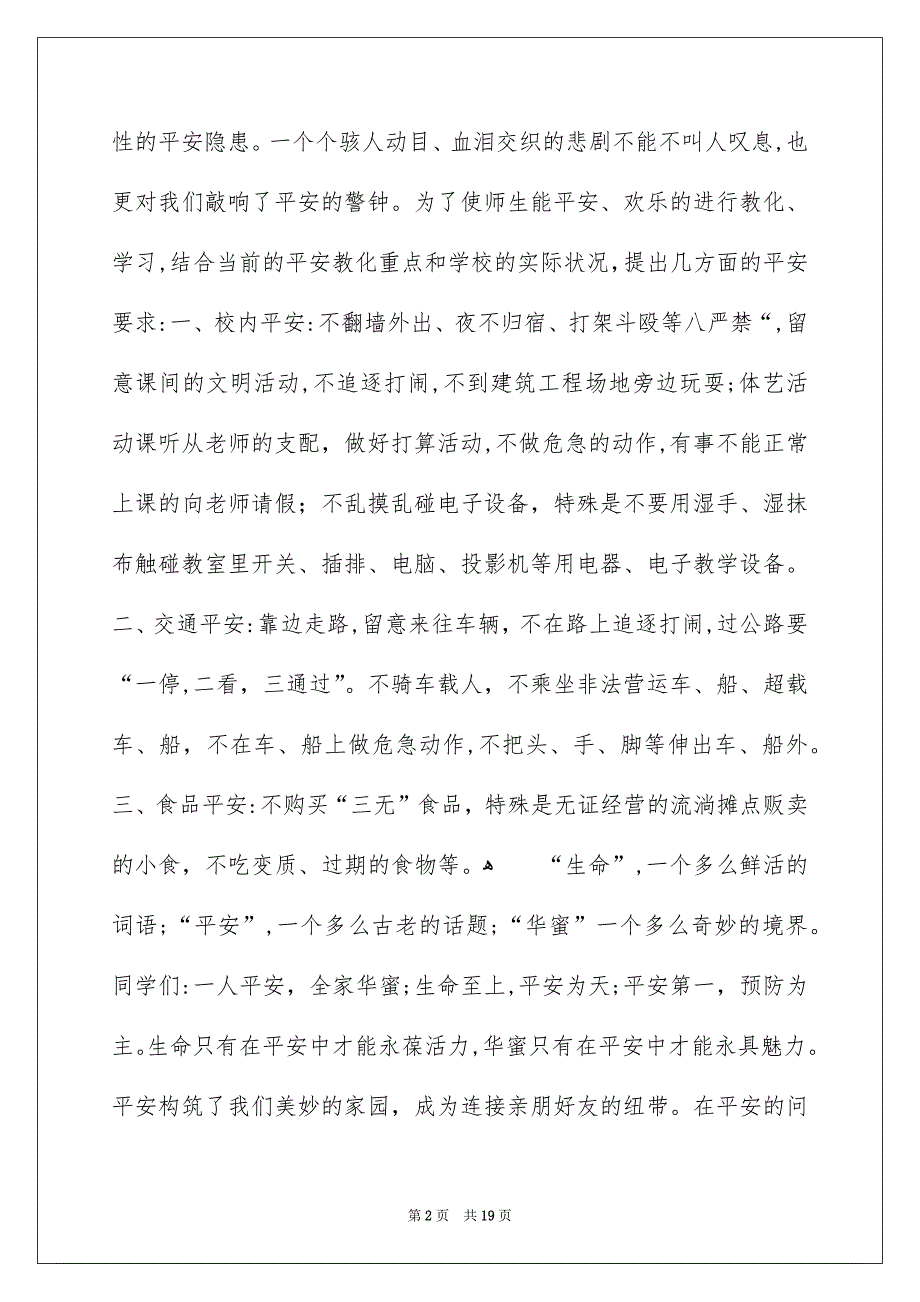 性的平安隐患。一个个骇人动目、血泪交织的悲剧不能不叫人叹息,也
更对我们敲响了平安的警钟。为了使师生能平安、欢乐的进行教化、
学习,结合当前的平安教化重点和学校的实际状况，提出几方面的平安
要求:一、校内平安:不翻墙外出、夜不归宿、打架斗殴等八严禁“,留
意课间的文明活动,不追逐打闹,不到建筑工程场地旁边玩耍;体艺活
动课听从老师的支配，做好打算活动,不做危急的动作,有事不能正常
上课的向老师请假；不乱摸乱碰电子设备，特殊是不要用湿手、湿抹
布触碰教室里开关、插排、电脑、投影机等用电器、电子教学设备。
二、交通平安:靠边走路,留意来往车辆，不在路上追逐打闹,过公路要
“一停,二看，三通过”。不骑车载人，不乘坐非法营运车、船、超载
车、船，不在车、船上做危急动作,不把头、手、脚等伸出车、船外。
三、食品平安:不购买“三无”食品，特殊是无证经营的流淌摊点贩卖
的小食，不吃变质、过期的食物等。ﻫ “生命”,一个多么鲜活的
词语;“平安”,一个多么古老的话题;“华蜜”一个多么奇妙的境界。
同学们:一人平安，全家华蜜;生命至上,平安为天;平安第一，预防为
主。生命只有在平安中才能永葆活力,华蜜只有在平安中才能永具魅力。
平安构筑了我们美妙的家园，成为连接亲朋好友的纽带。在平安的问
第 2 页 共 19 页